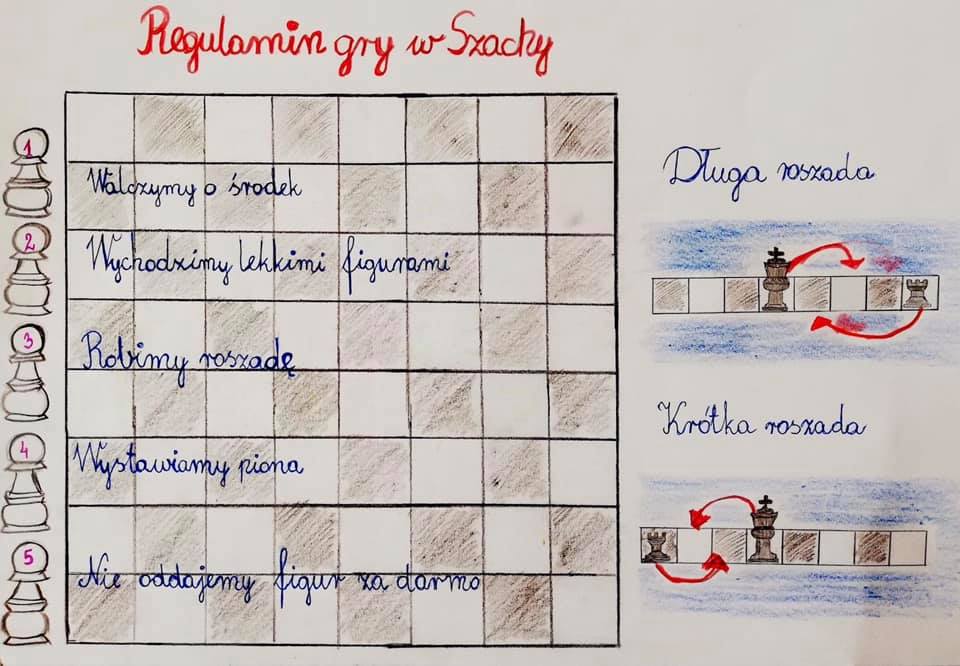 Regulamin gry w Szachy
1
Walczymy o środek
2
Wychodzimy lekkimi figurami
3
Robimy roszadę
4
Wystawiamy piona
5
Nie oddajemy figur za darmo
Długa roszada
Krótka roszada